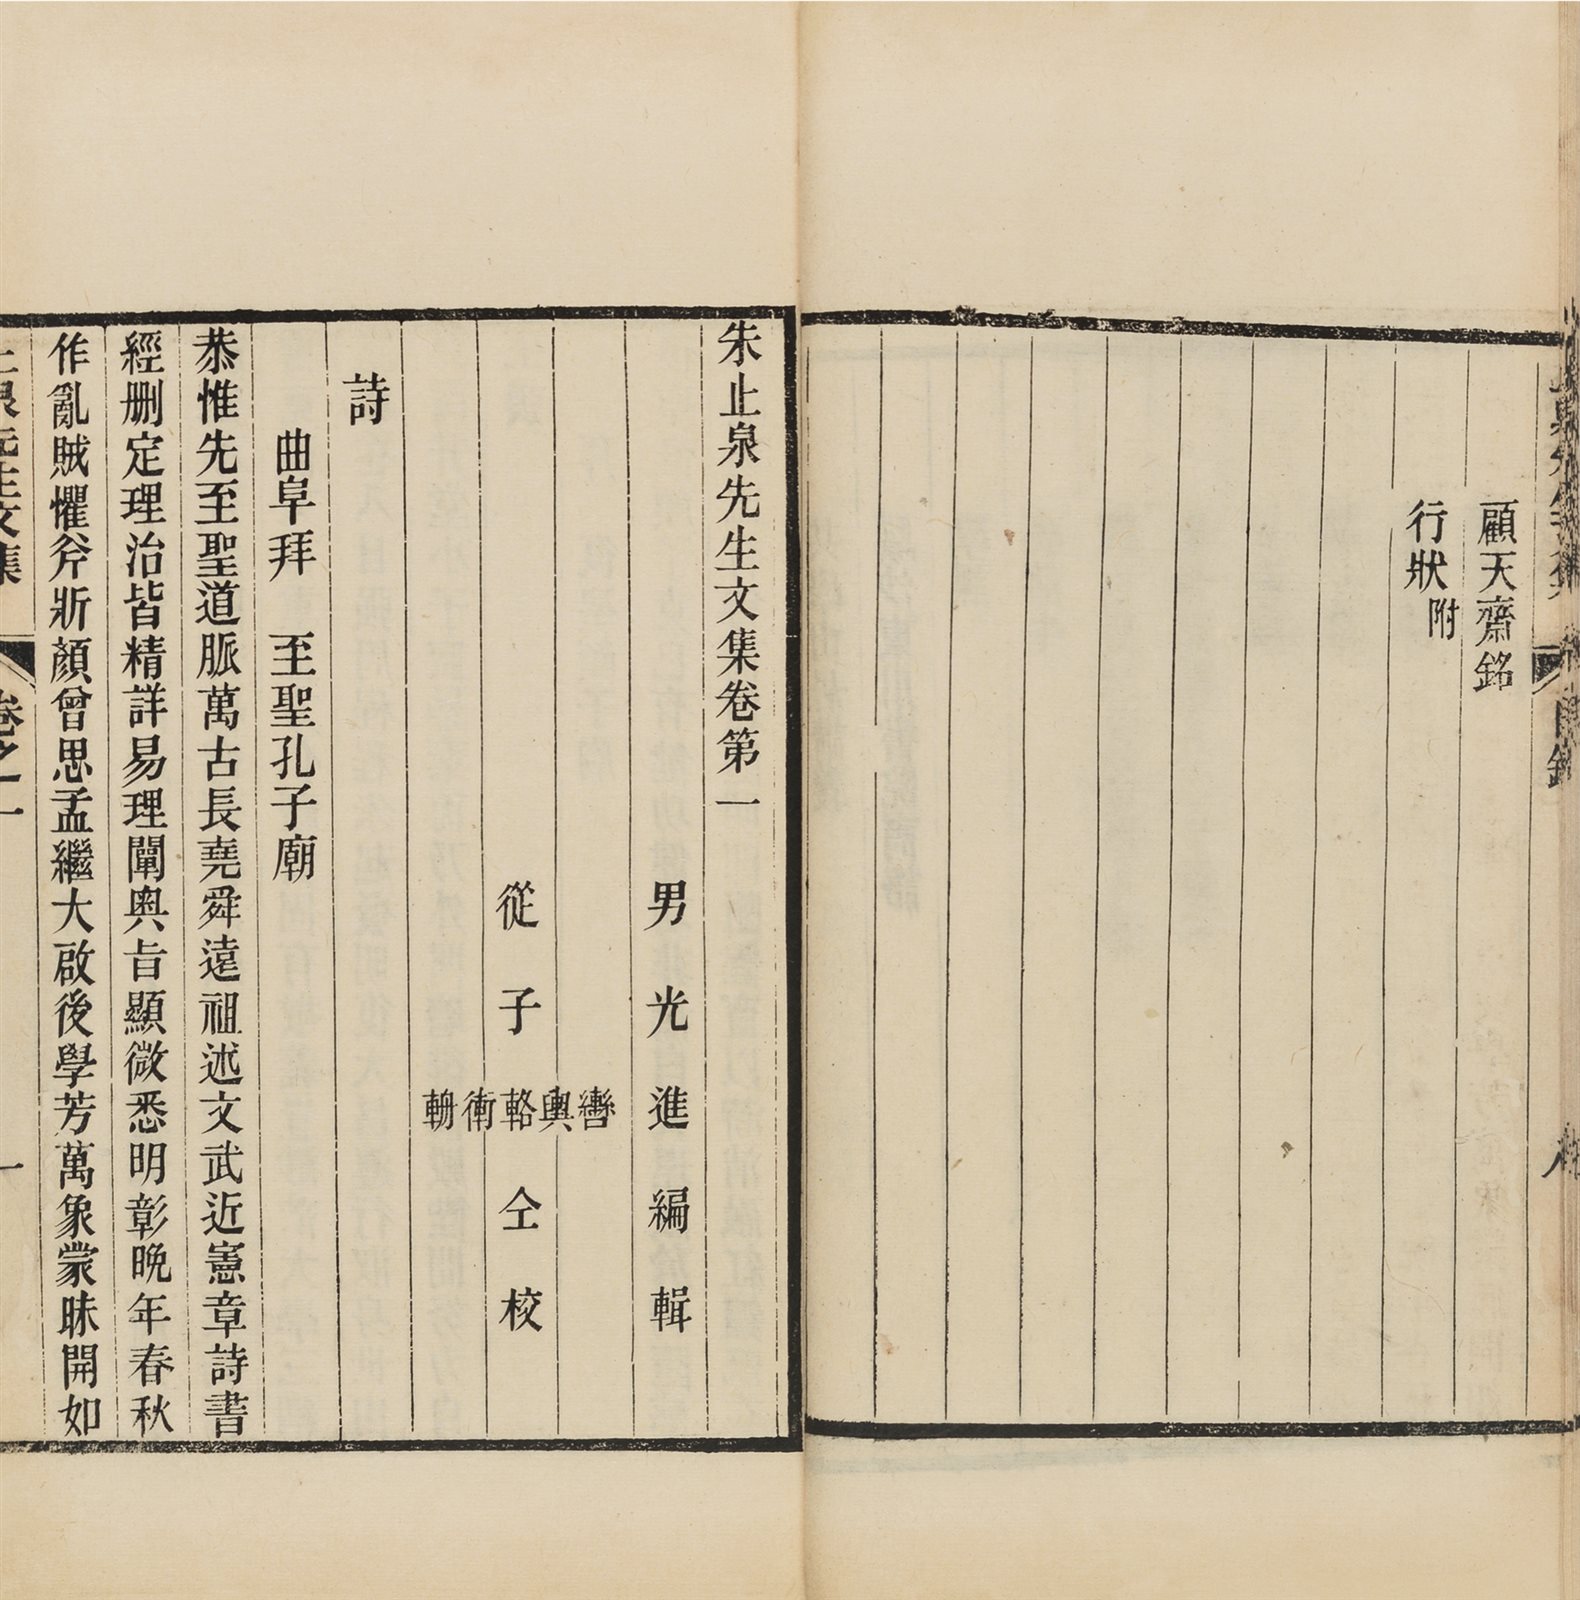 顧天齋銘
行狀附
朱止泉先生文集卷第一
男光進編輯
從子轡輿輅衛輈仝校
詩
曲阜拜　至聖孔子廟
恭惟先至聖道脈萬古長堯舜遠祖述文武近憲章詩書
經刪定理治皆精詳易理闡奧旨顯微悉明彰晚年春秋
作亂賊懼斧斨顏曾思孟繼大啟後學芳萬象蒙昧開如
止泉先生文集　卷之一　一